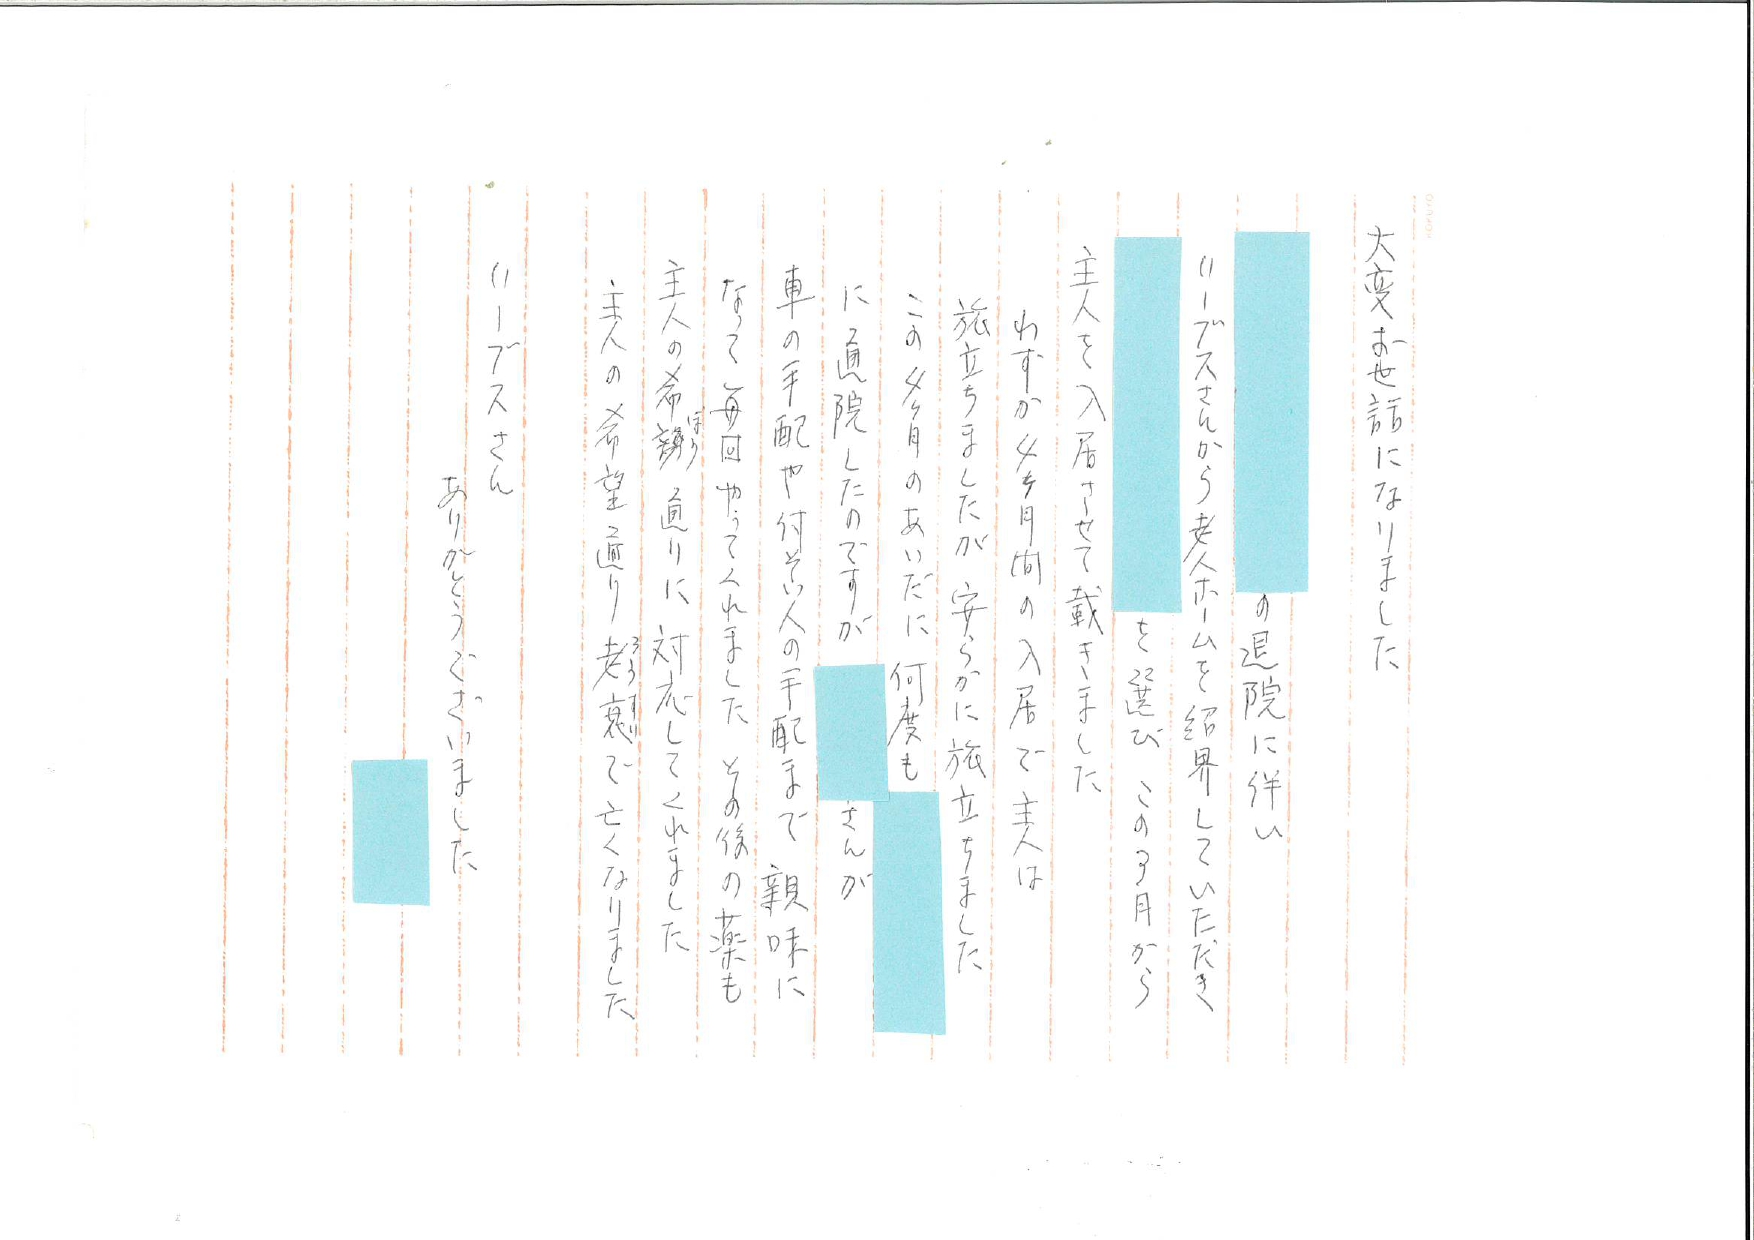 大変お世話になりました
の退院に伴い
リーブスさんから老人ホームを紹界していただき
を選び この3月から
主人を入居させて載きました
わずか4ヶ月間の入居で主人は
旅立ちましたが 安らかに旅立ちました
この4ヶ月のあいだに 何度も
に通院したのですが さんが
車の手配や付そい人の手配まで 親味に
なって 毎回やってくれました その後の薬も
主人の希 ぼう 通りに 対応してくれました
主人の希望通り 老衰 ろうすい で亡くなりました
リーブスさん
ありがとうございました
KOKUYO